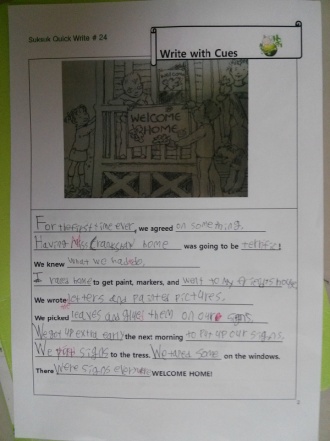 Suksok Quick Write # 24
Write with Cues
WELCOME
WELCOME
HOME
For the first time ever, we agreed on something.
Having Ms. Cranshaw home was going to be terrific!
We knew what we had to do.
I raced home to get paint, markers, and went to my friend's house.
We wrote letters and painter pictures.
We picked leaves and glued them on our signs.
We got up extra early the next morning to put up our signs.
We signs to the tress. We taped some on the windows.
There were signs everywhere WELCOME HOME!